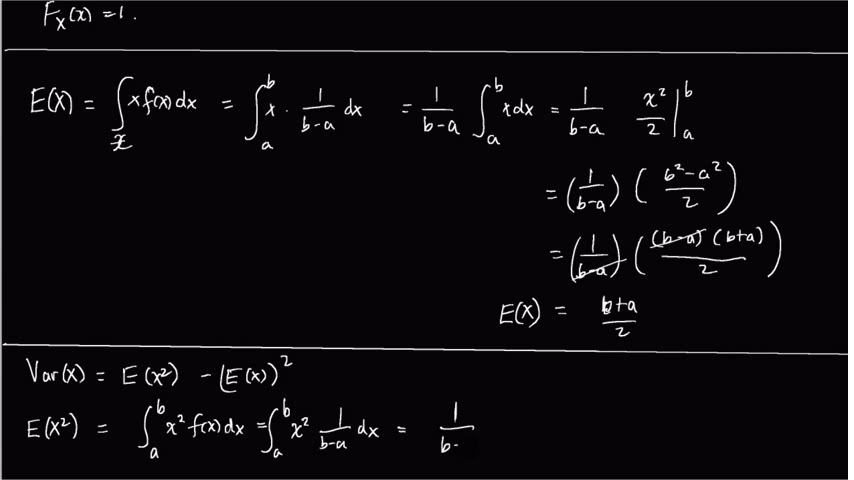 F_X(x) = 1.
E(X) = ∫_x x f(x) dx = ∫_a^b x · 1/(b-a) dx = 1/(b-a) ∫_a^b x dx = 1/(b-a) x²/2 |_a^b
= (1/(b-a)) ((b²-a²)/2)
= (1/(b-a)) ((b-a)(b+a)/2)
E(X) = (b+a)/2
Var(X) = E(X²) - (E(X))²
E(X²) = ∫_a^b x² f(x) dx = ∫_a^b x² 1/(b-a) dx = 1/(b-